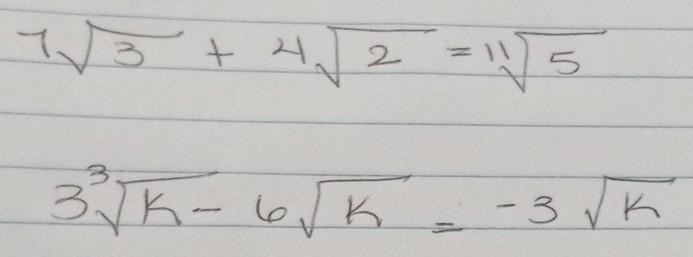 7√3 + 4√2 = 11√5
3∛K - 6√K = -3√K